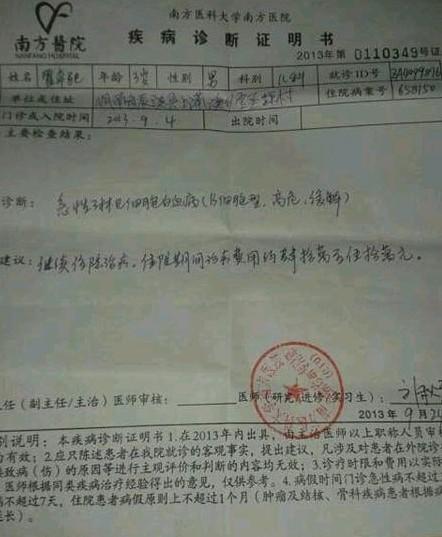 南方医科大学南方医院
南方醫院
NANFANG HOSPITAL
疾病诊断证明书
2013年第0110349号证
姓名 年龄 3岁 性别 男 科别 儿科 就诊ID号
单位或住址 住院病案号 658150
门诊或入院时间 2013.9.4 出院时间
主要检查结果:
诊断: 急性淋巴细胞白血病(B细胞型、高危、缓解)
建议: 继续住院治疗,住院期间诊疗费用约肆拾萬至伍拾萬元。
任(副主任/主治)医师审核: 医师(研究/进修/实习生):
2013年9月24
别说明:本疾病诊断证明书1.在2013年内出具,由主治医师以上职称人员审核
方有效;2.应只陈述患者在我院就诊的客观事实,提出建议,凡涉及对患者在外院诊
致病(伤)的原因等进行主观评价和判断的内容均无效;3.诊疗时限和费用以实际
医师根据同类疾病治疗经验得出的意见,仅供参考。4.病假时间门诊急性病不超过
病不超过7天,住院患者病假原则上不超过1个月(肿瘤及结核、骨科疾病患者根据病
延长)。